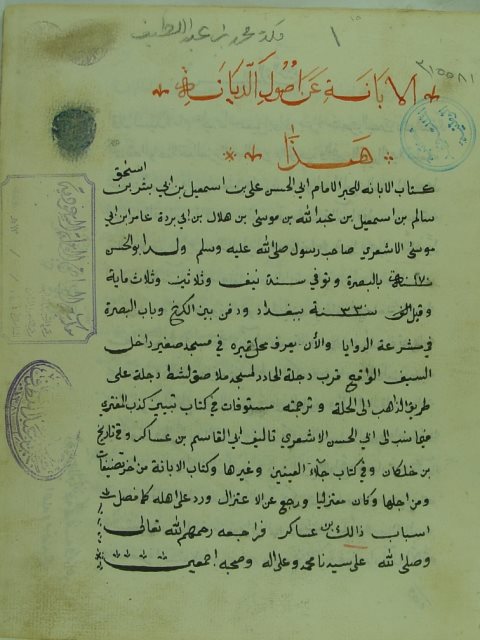 ملكه محمد بن عبد اللطيف
١
٢١٥٥٨١
الإبانة عن أصول الديانة
هذا
كتاب الابانه للحبر الامام ابي الحسن علي بن اسمعيل بن ابي بشر بن اسحق
سالم بن اسمعيل بن عبد الله بن موسى بن هلال بن ابي بردة عامر ابن ابي
موسى الاشعري صاحب رسول صلى الله عليه وسلم ولد ابو الحسن
٢٧٠ بالبصرة وتوفي سنة نيف وثلاثين وثلاث ماية
وقيل سنة ٣٣٠ ببغداد ودفن بين الكرخ وباب البصرة
في مشرعة الروايا والأن يعرف محل قبره في مسجد صغير داخل
السيف الواقع قرب دجلة الحادد لمسجد ملاصق لشط دجلة على
طريق الذاهب الى الحلة وترجمته مستوفات في كتاب تبيين كذب المفتري
فيما نسب الى ابي الحسن الاشعري تاليف ابي القاسم بن عساكر وفي تاريخ
بن خلكان وفي كتاب جلاء العينين وغيرها وكتاب الابانة من اخر تصنيفات
ومن اجلها وكان معتزليا ورجع عن الاعتزال ورد على اهله كما فصل
اسباب ذالك بن عساكر فراجعه رحمهم الله تعالى
وصلى الله على سيدنا محمد وعلى اله وصحبه اجمعين